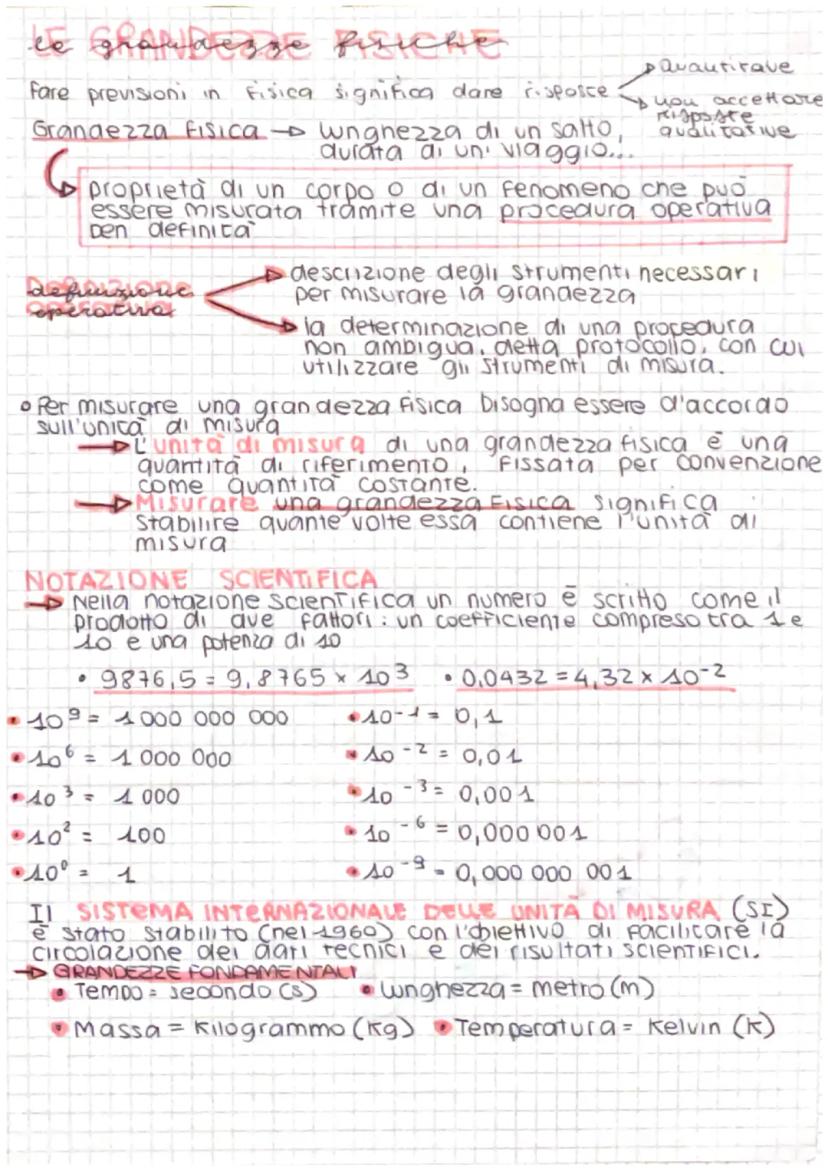 LE GRANDEZZE FISICHE
le grandezze fisiche
Fare previsioni in Fisica significa dare risposte
quantitative
non accettare risposte qualitative
Grandezza fisica → lunghezza di un salto,
durata di un viaggio...
proprietà di un corpo o di un fenomeno che può
essere misurata tramite una procedura operativa
ben definita
Definizione
operativa
descrizione degli strumenti necessari
per misurare la grandezza
la determinazione di una procedura
non ambigua, detta protocollo, con cui
utilizzare gli strumenti di misura.
Per misurare una grandezza fisica bisogna essere d'accordo
sull'unità di misura
→ L'unità di misura di una grandezza fisica è una
quantità di riferimento, fissata per convenzione
come quantità costante.
→ Misurare una grandezza fisica significa
stabilire quante volte essa contiene l'unità di
misura
NOTAZIONE SCIENTIFICA
→ Nella notazione scientifica un numero è scritto come il
prodotto di due fattori: un coefficiente compreso tra 1 e
10 e una potenza di 10
• 9876,5 = 9,8765 × 10³ • 0,0432 = 4,32 × 10⁻²
• 10⁹ = 1 000 000 000 • 10⁻¹ = 0,1
• 10⁶ = 1 000 000 • 10⁻² = 0,01
• 10³ = 1 000 • 10⁻³ = 0,001
• 10² = 100 • 10⁻⁶ = 0,000 001
• 10⁰ = 1 • 10⁻⁹ = 0,000 000 001
Il SISTEMA INTERNAZIONALE DELLE UNITÀ DI MISURA (SI)
è stato stabilito (nel 1960) con l'obiettivo di facilitare la
circolazione dei dati tecnici e dei risultati scientifici.
→ GRANDEZZE FONDAMENTALI
• Tempo = secondo (s) • lunghezza = metro (m)
• Massa = Kilogrammo (Kg) • Temperatura = Kelvin (K)